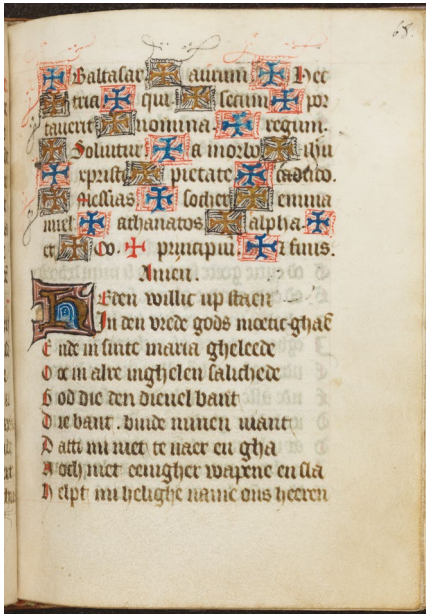 68.
✠ Baltasar ✠ aurum ✠ Hec
✠ tria ✠ qui ✠ secum ✠ por
tauerit ✠ nomina ✠ regum.
✠ Soluitur ✠ a morbo ✠ ihu
✠ xpristi ✠ pietate ✠ caduco.
✠ Messias ✠ sother ✠ emma
nuel ✠ athanatos ✠ alpha ✠
et ✠ Ov. ✠ principiu. ✠ & finis.
Amen.
Heden willic up staen
In den vrede gods moetic ghaē
Ende in sinte maria gheleede
Oec in alre inghelen salichede
God die den dieuel bant
Die bant. binde minen viant
Datti mi niet te naer en gha
Noch met eenigher wapene en sla
Helpt mi helighe name ons heeren